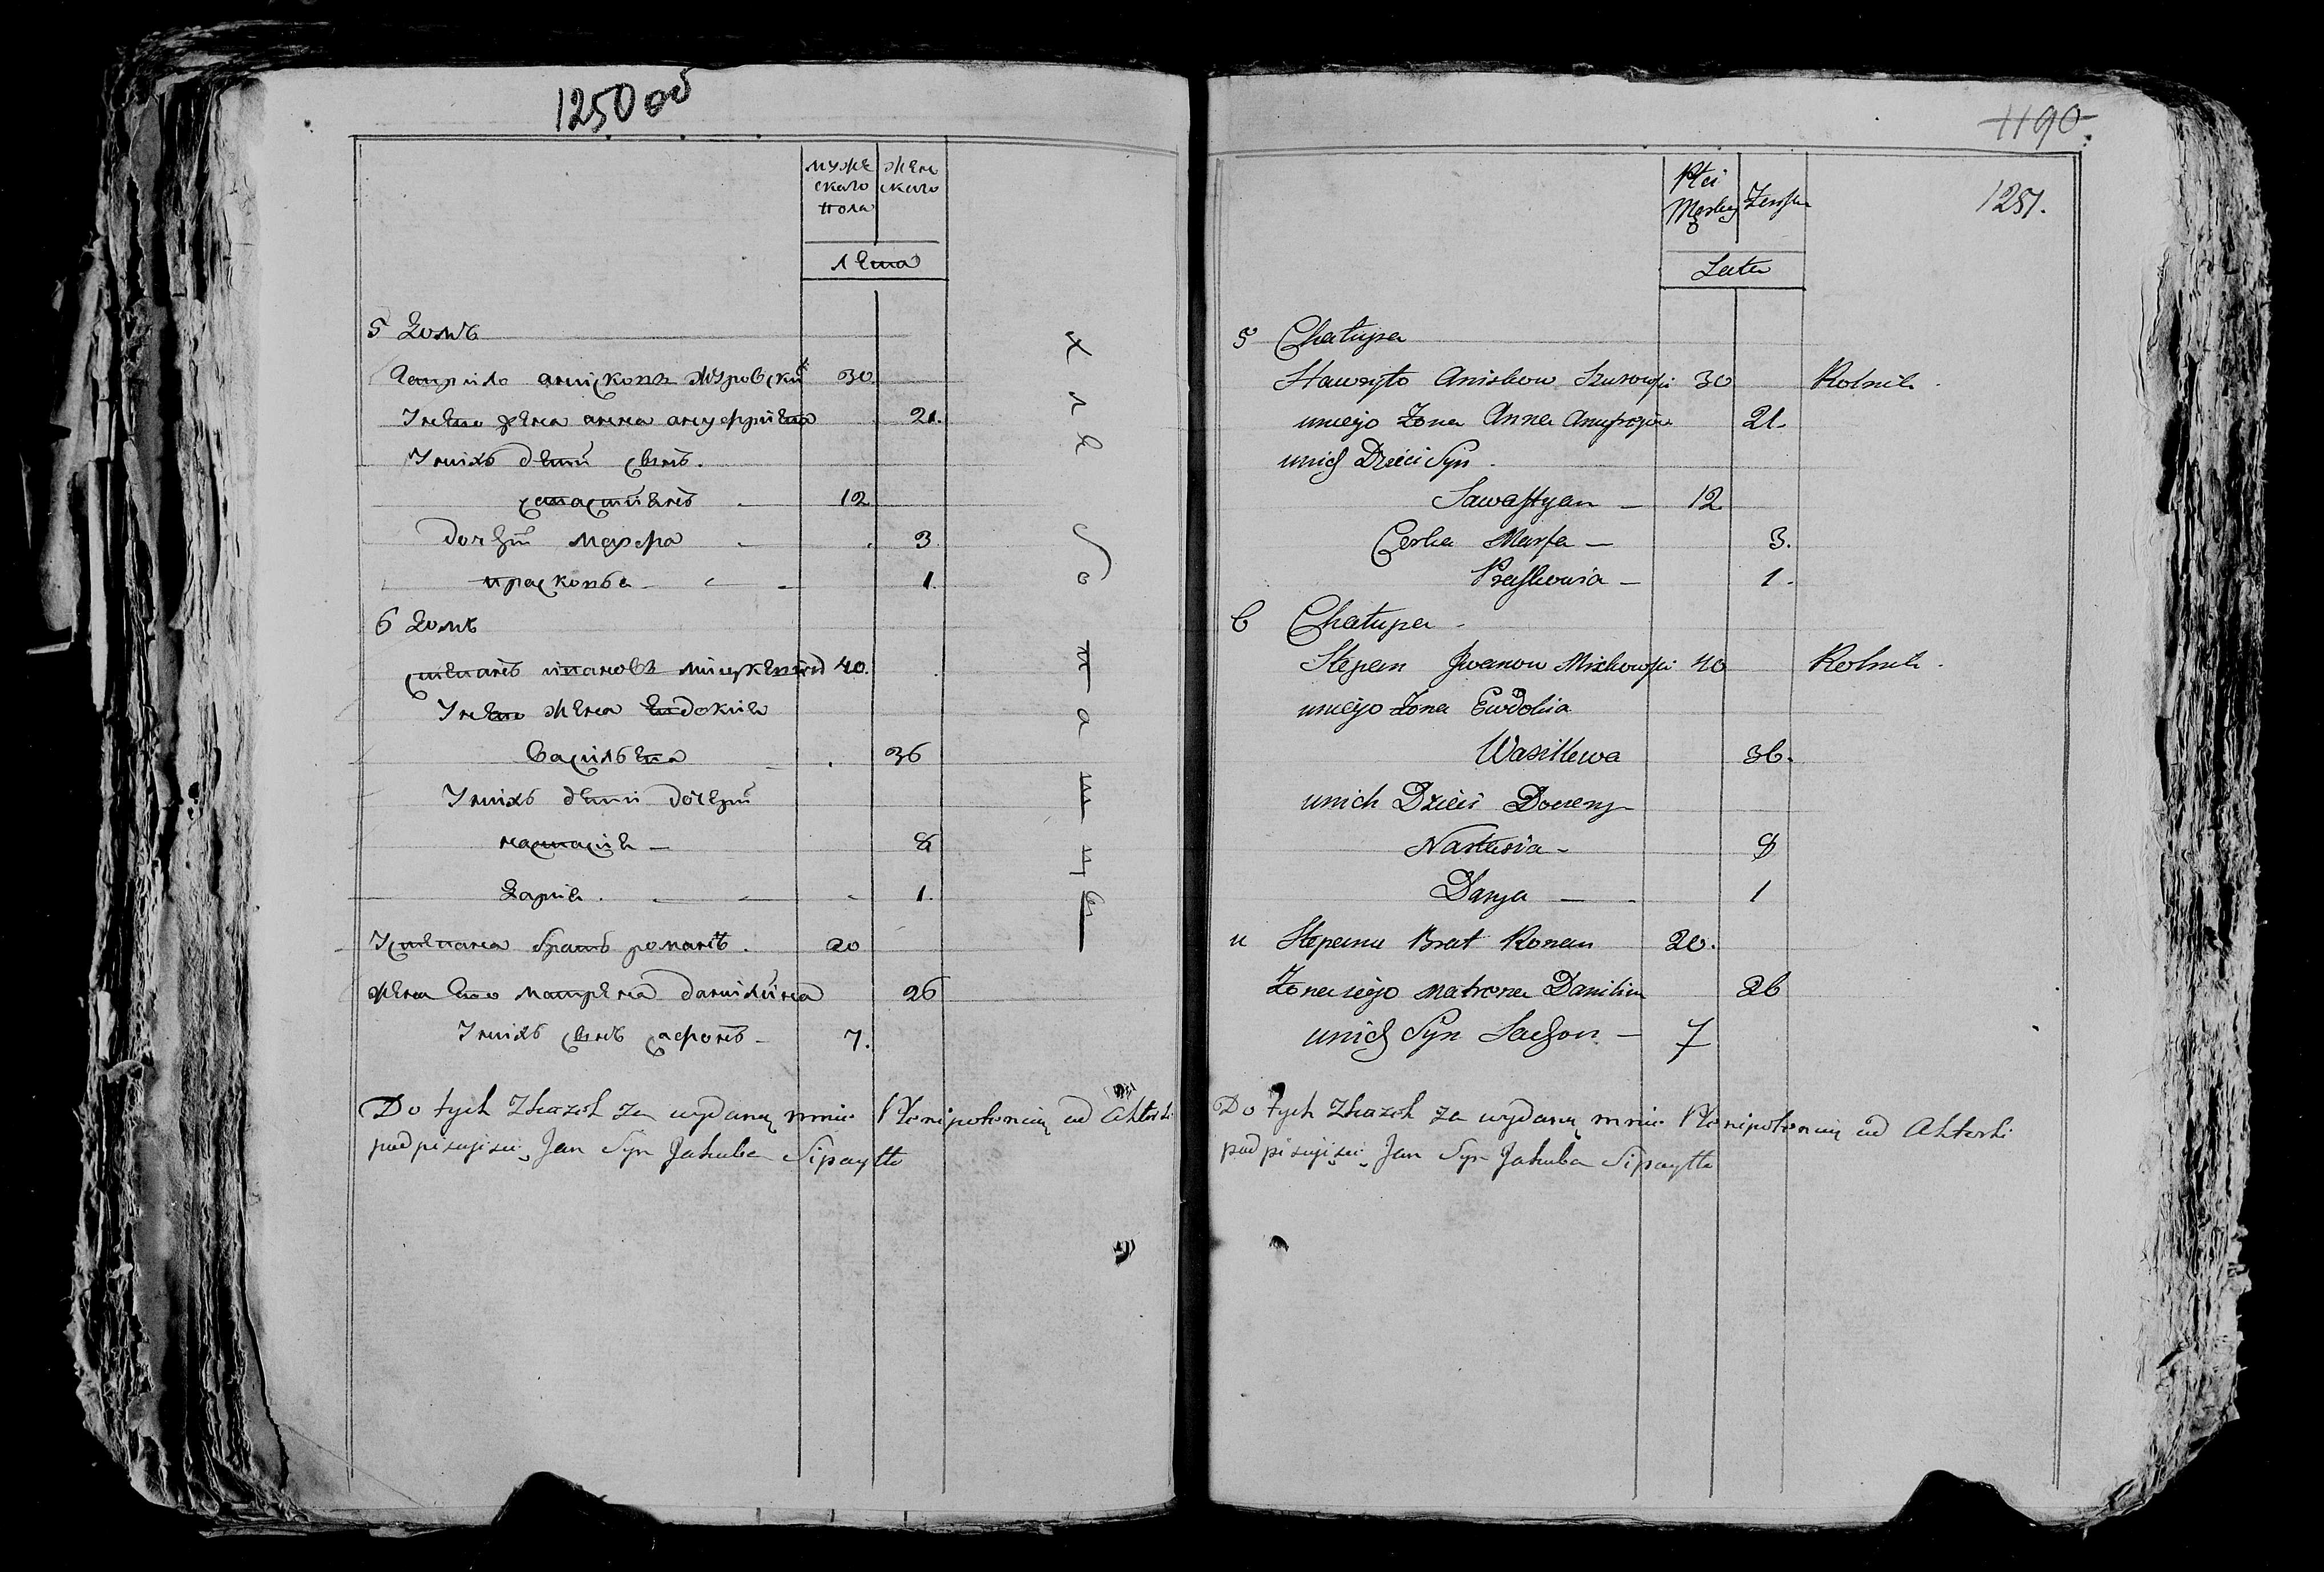 1250 об
муже
скаго
пола
женс
скаго
лета
5 Домъ
Гаврило анисковъ журовский 30
У нево жена анна ануфриева 21.
У нихъ дети сынъ.
савастиянъ 12
дочери марфа 3
прасковья 1.
6 Домъ
степанъ ивановъ 40.
У нево жена евдокия
Васильева 36
У нихъ дети дочери
настасия 8
Дария 1.
У степана братъ романъ. 20
жена ево матрена данилина 26
У нихъ сынъ сафонъ 7.
хлебопашцы
Do tych Skazok za wydaną mnie Plenipotencią od Aktorki
podpisuji się Jan Syn Jakuba Sipaytto
1190
1251.
Płci
Męskey
Żeńskey
Lata
5 Chatupa
Hawryło Aniskow Szurowski 30 Rolnik
uniego Żona Anna Anufrejewa 21.
unich Dzieci Syn
Sawastyan 12
Corka Marfa 3.
Praskowia 1.
6 Chatupa
Stepan Jwanow 40 Rolnik
uniego Żona Ewdokia
Wasilewa 36.
unich Dzieci Doczery
Nastasia 8
Darya 1
u Stepana Brat Roman 20.
Żona iego Matrona Danilina 26
unich Syn Safon 7
Do tych Skazok za wydaną mnie Plenipotencią od Aktorki
podpisuji się Jan Syn Jakuba Sipaytto